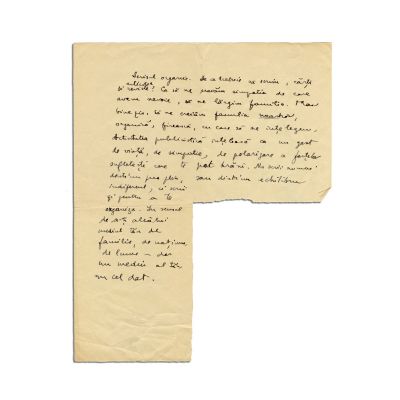 Scrisul organic. De ce trebuie să scriu, cărți,
articole
și reviste? Ca să ne creăm simpatia de care
avem nevoie, să ne lărgim familia. Mai
bine zis, să ne creăm familia noastră,
organică, firească, cu care să ne înțelegem.
Activitatea publicistică înțeleasă ca un gest
de viață, de simpatie, de polarizare a forțelor
sufletești care te pot hrăni. Nu scrii numai
dintr-un prea plin sau dintr-un echilibru
indiferent, ci scrii
și pentru a te
organiza. În sensul
de a-ți alcătui
mediul tău de
familie, de națiune,
de lume – dar
un mediu al tău
nu cel dat.